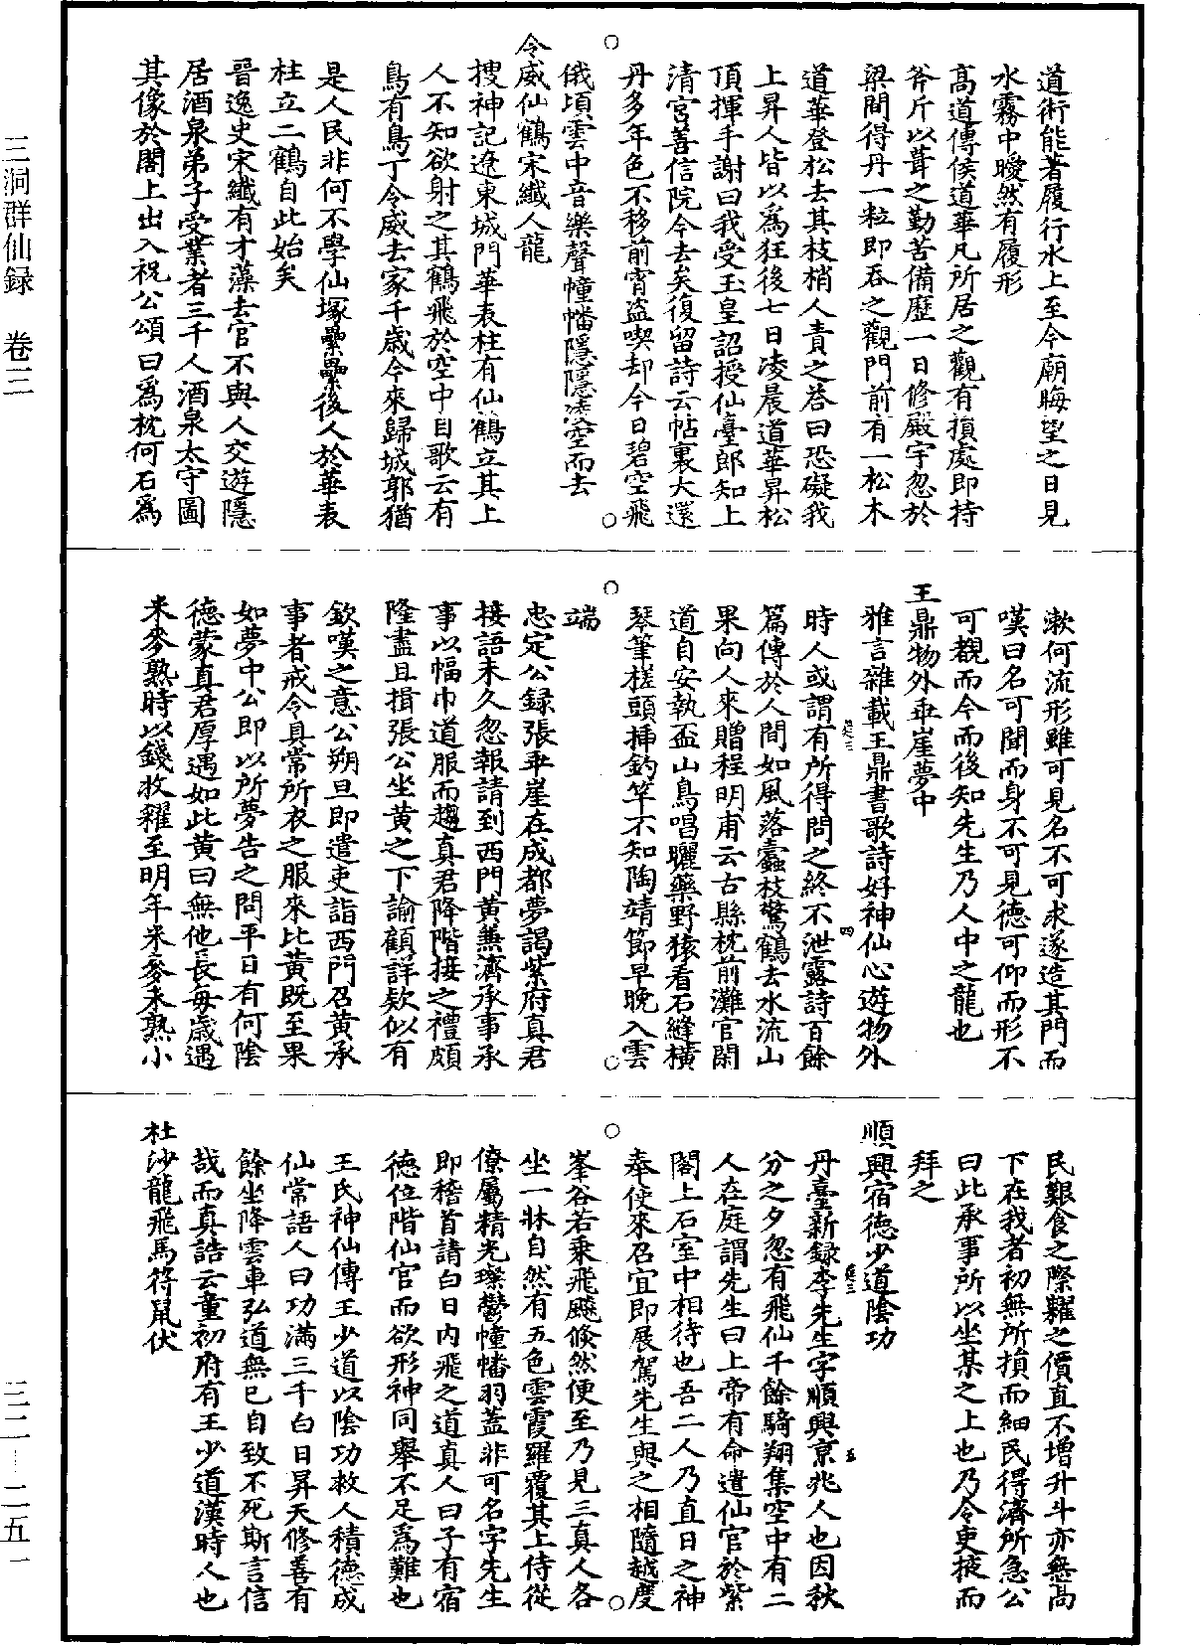 道術能著履行水上至今廟晦望之日見
水霧中曖然有履形
高道傳侯道華凡所居之觀有損處即持
斧斤以葺之勤苦備歷一日修殿宇忽於
梁間得丹一粒即吞之觀門前有一松木
道華登松去其枝梢人責之荅曰恐礙我
上昇人皆以爲狂後七日凌晨道華昇松
頂揮手謝曰我受玉皇詔授仙臺郎知上
清宮善信院今去矣復留詩云帖裏大還
丹多年色不移前宵盜喫却今日碧空飛
俄頃雲中音樂聲幢幡隱隱凌空而去
令威仙鶴宋纖人龍
搜神記遼東城門華表柱有仙鶴立其上
人不知欲射之其鶴飛於空中自歌云有
鳥有鳥丁令威去家千歲今來歸城郭猶
是人民非何不學仙塚纍纍後人於華表
柱立二鶴自此始矣
晉逸史宋纖有才藻去官不與人交遊隱
居酒泉弟子受業者三千人酒泉太守圖
其像於閣上出入祝公頌曰爲枕何石爲
漱何流形雖可見名不可求遂造其門而
嘆曰名可聞而身不可見德可仰而形不
可覩而今而後知先生乃人中之龍也
王鼎物外乖崖夢中
雅言雜載王鼎書歌詩好神仙心遊物外
時人或謂有所得問之終不泄露詩百餘
篇傳於人間如風落蠹枝驚鶴去水流山
果向人來贈程明甫云古縣枕前灘官閑
道自安執盃山鳥唱曬藥野猿看石縫橫
琴筆槎頭揷釣竿不知陶靖節早晚入雲
端
忠定公録張乖崖在成都夢謁紫府真君
接語未久忽報請到西門黃兼濟承事承
事以幅巾道服而趨真君降階接之禮頗
隆盡且揖張公坐黃之下諭顧詳欵似有
欽嘆之意公朔旦即遣吏詣西門召黃承
事者戒令具常所衣之服來比黃既至果
如夢中公即以所夢告之問平日有何陰
德蒙真君厚遇如此黃曰無他長每歲遇
米麥熟時以錢收糴至明年米麥未熟小
民艱食之際糶之價直不增升斗亦無高
下在我者初無所損而細民得濟所急公
曰此承事所以坐某之上也乃令吏掖而
拜之
順興宿德少道陰功
丹臺新録李先生字順興京兆人也因秋
分之夕忽有飛仙千餘騎翔集空中有二
人在庭謂先生曰上帝有命遣仙官於紫
閣上石室中相待也吾二人乃直日之神
奉使來召宜即展駕先生與之相隨越度
峯谷若乘飛飈倏然便至乃見三真人各
坐一牀自然有五色雲霞羅覆其上侍從
僚屬精光璨鬱幢幡羽蓋非可名字先生
即稽首請白日內飛之道真人曰子有宿
德位階仙官而欲形神同舉不足爲難也
王氏神仙傳王少道以陰功救人積德成
仙常語人曰功滿三千白日昇天修善有
餘坐降雲車弘道無已自致不死斯言信
哉而真誥云童初府有王少道漢時人也
杜沙龍飛馬符鼠伏
三洞群仙録　卷三
三二—二五一